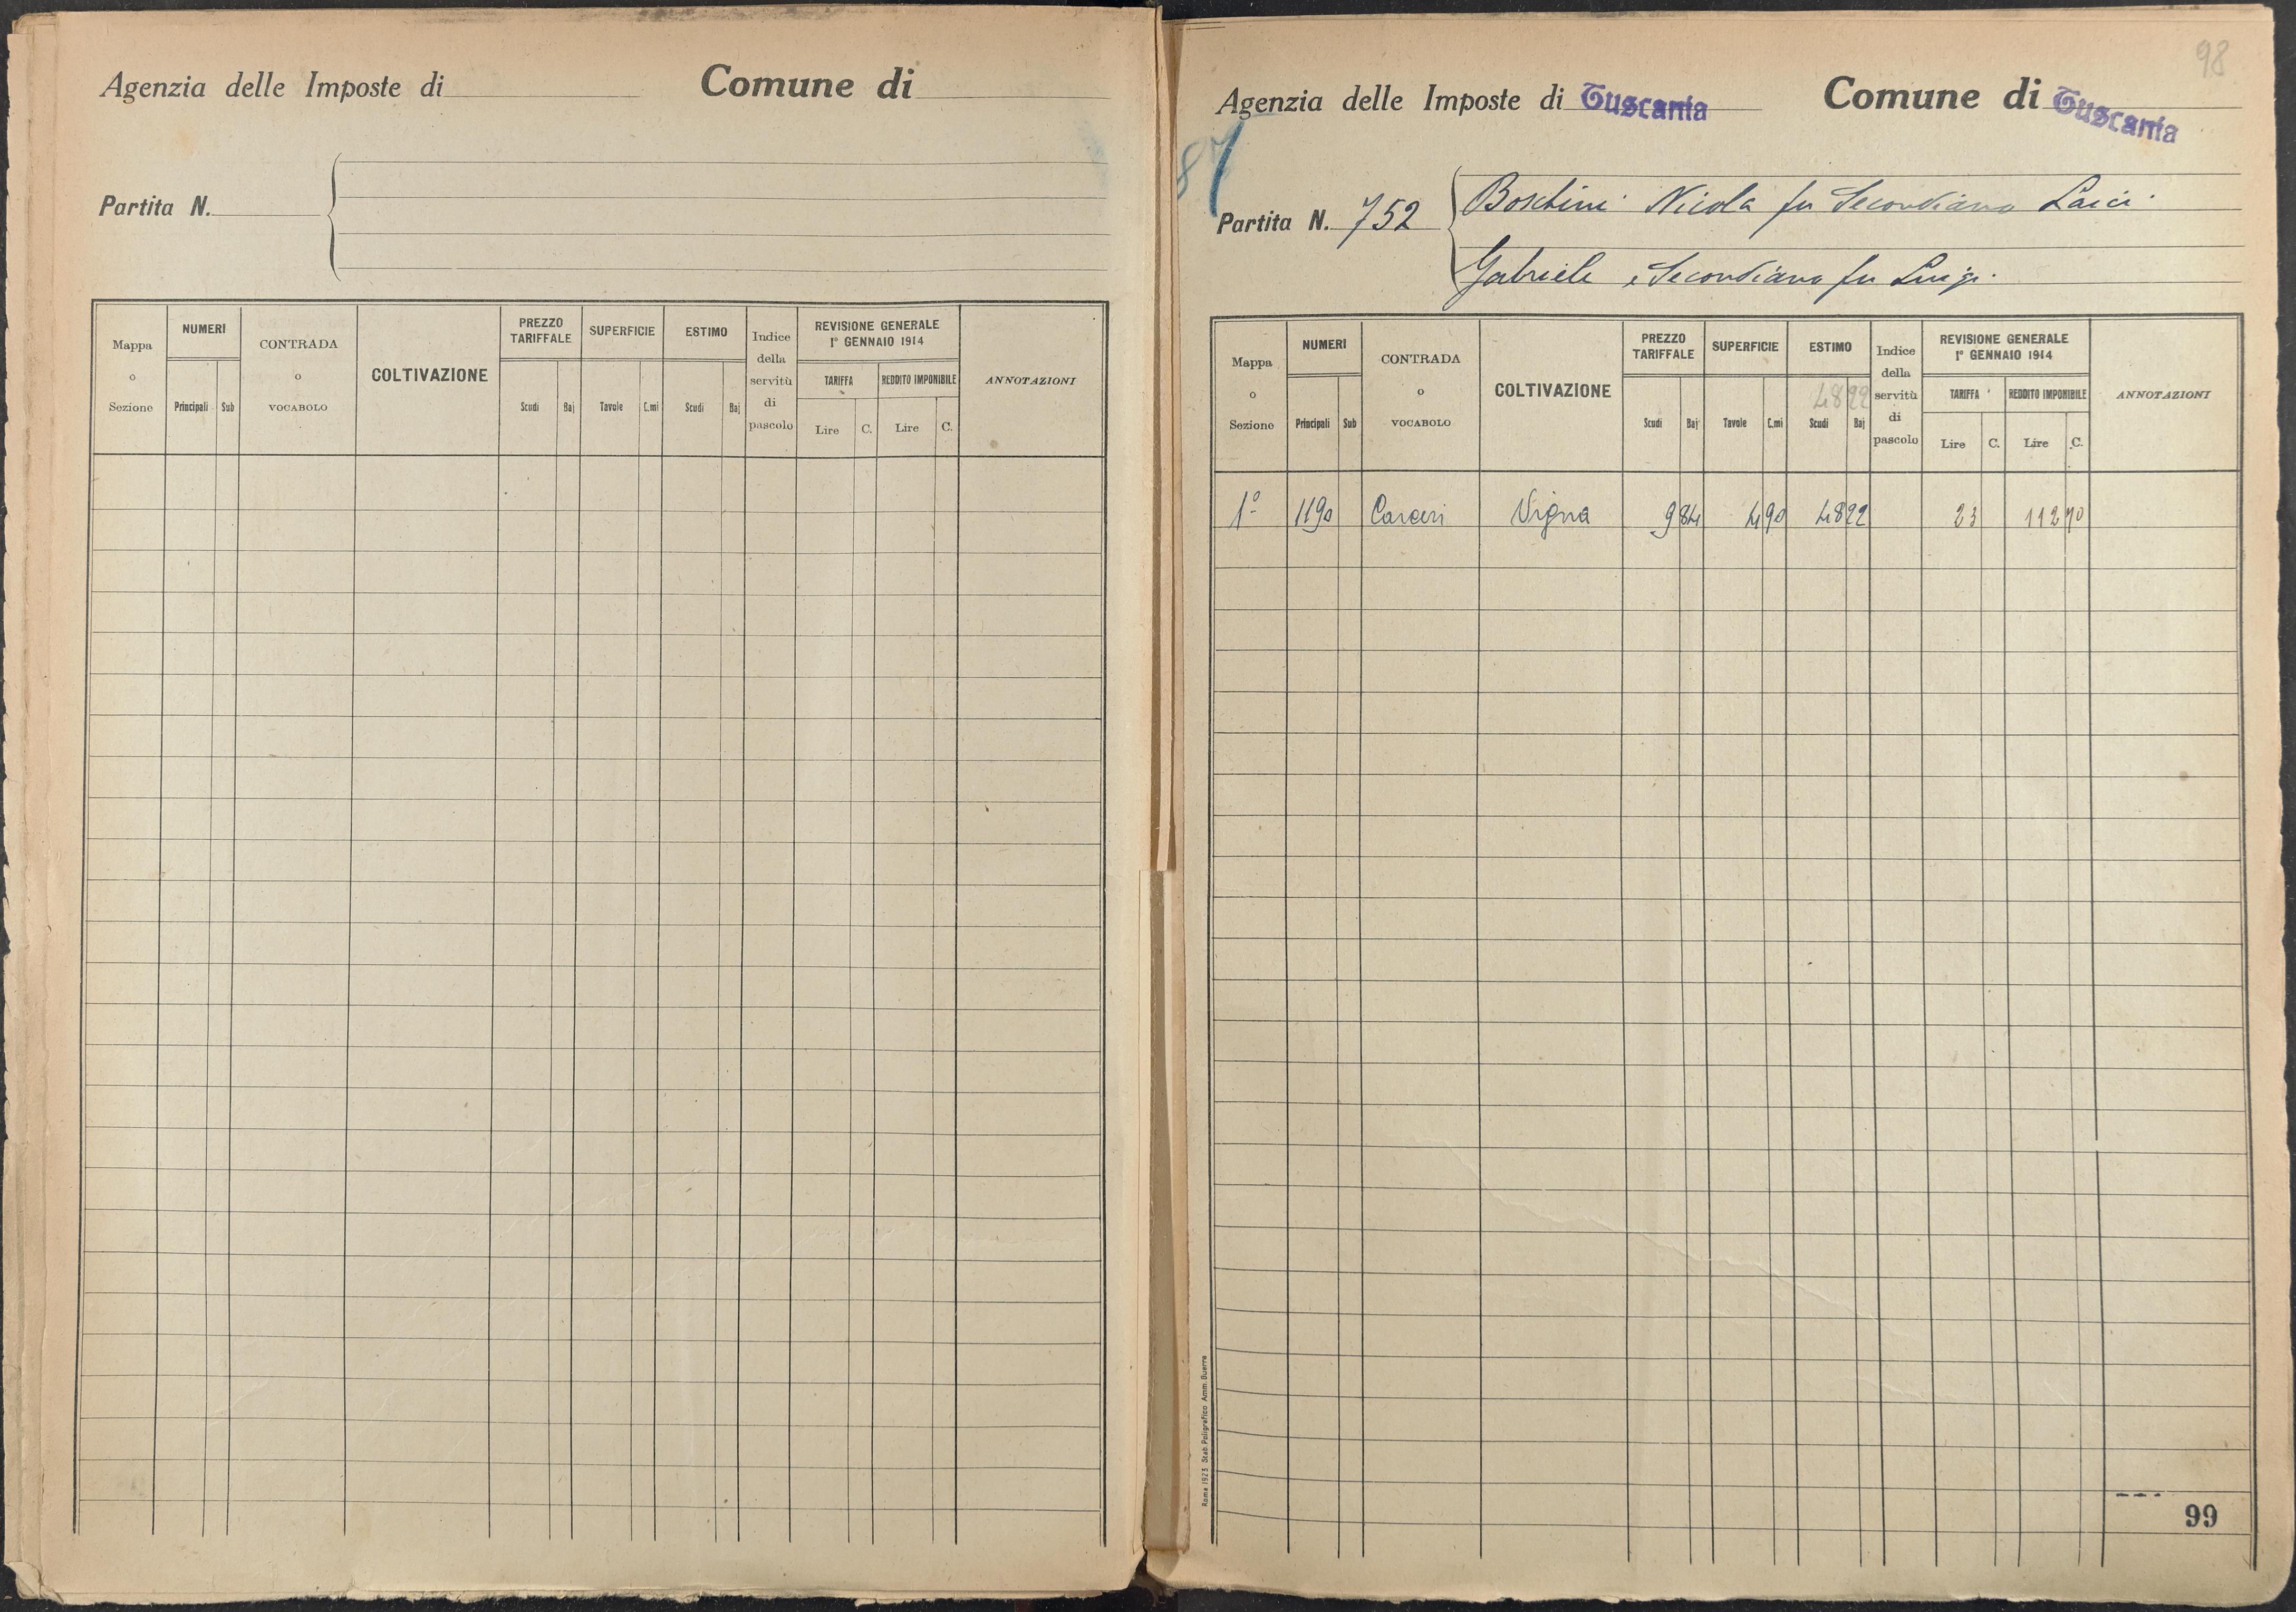 Agenzia delle Imposte di
Comune di
Partita N.
Mappa o Sezione
NUMERI
Principali Sub
CONTRADA o VOCABOLO
COLTIVAZIONE
PREZZO TARIFFALE
Scudi Baj
SUPERFICIE
Tavole C.mi
ESTIMO
Scudi Baj
Indice della servitù di pascolo
REVISIONE GENERALE
1° GENNAIO 1914
TARIFFA
Lire C.
REDDITO IMPONIBILE
Lire C.
ANNOTAZIONI
98
Agenzia delle Imposte di Tuscania
Comune di Tuscania
87
Partita N. 752
Boschini Nicola fu Secondiano Laici.
Gabriele e Secondiano fu Luigi.
Mappa o Sezione
NUMERI
Principali Sub
CONTRADA o VOCABOLO
COLTIVAZIONE
PREZZO TARIFFALE
Scudi Baj
SUPERFICIE
Tavole C.mi
ESTIMO
4822
Scudi Baj
Indice della servitù di pascolo
REVISIONE GENERALE
1° GENNAIO 1914
TARIFFA
Lire C.
REDDITO IMPONIBILE
Lire C.
ANNOTAZIONI
1° 1190 Carceri Vigna 9 84 4 90 48 22 23 112 70
Roma 1923 Stab. Poligrafico Amm. Guerra
99